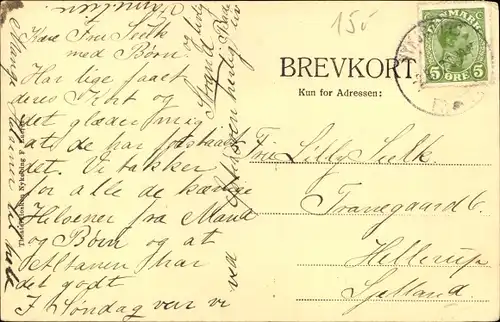 Kære Fru Seelk
med Børn.
Har lige faaet
deres Kort og
det glæder mig
at de har forstaaet
det. Vi takker
for alle de kærlige
Hilsener fra Mand
og Børn og at
Altanen har
det godt
I Søndag var vi
ved
Strand
og
Mange Hilsener til hele
Familien
BREVKORT
Kun for Adressen:
150
DANMARK
5 ØRE 5
Fru Lilly Seelk
Tranegaardv 6.
Hellerup
Sjælland.